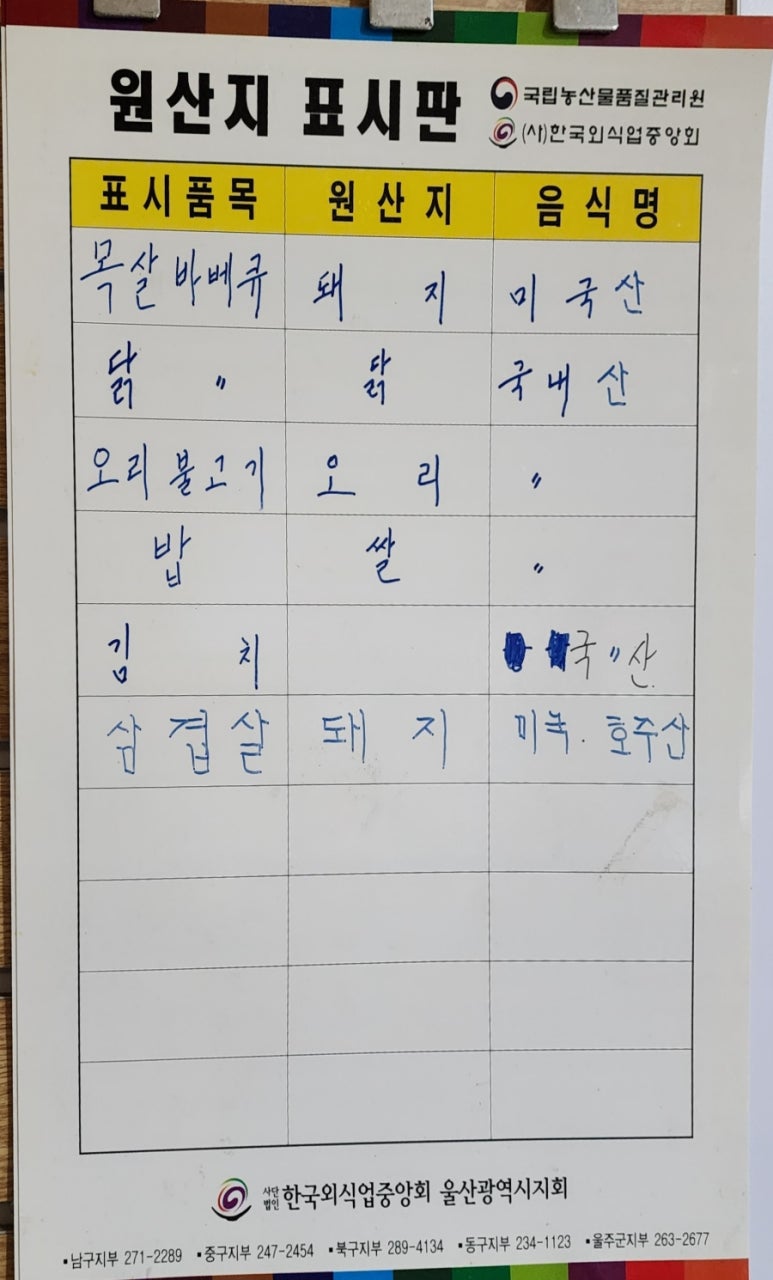 원산지 표시판
국립농산물품질관리원
(사)한국외식업중앙회
표시품목 원산지 음식명
목살 바베큐 돼지 미국산
닭 〃 닭 국내산
오리 불고기 오리 〃
밥 쌀 〃
김치 국〃산
삼겹살 돼지 미국. 호주산
사단법인 한국외식업중앙회 울산광역시지회
▪남구지부 271-2289 ▪중구지부 247-2454 ▪북구지부 289-4134 ▪동구지부 234-1123 ▪울주군지부 263-2677